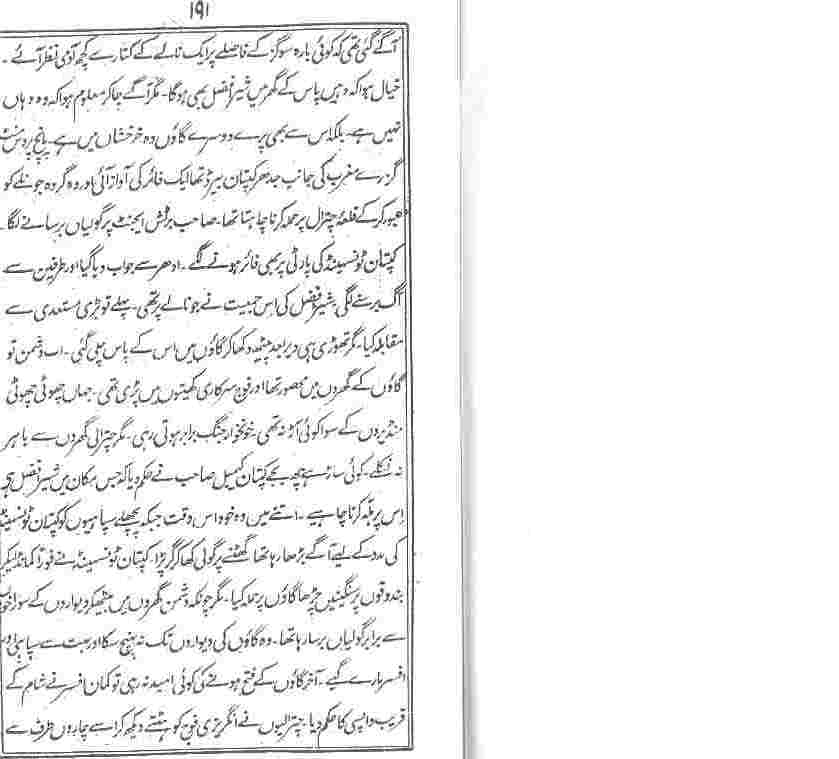 ۱۹۱
آگے گئی تھی کہ کوئی بارہ سو گز کے فاصلے پر ایک نالے کے کنارے کچھ آدمی نظر آئے۔
خیال ہوا کہ وہیں پاس کے گھر میں شیر افضل بھی ہوگا۔ مگر آگے جاکر معلوم ہوا کہ وہ وہاں
نہیں ہے۔ بلکہ اس سے بھی پرے دوسرے گاؤں وہ خرخشاں میں ہے۔ پانچ منٹ
گزرے مغرب کی جانب جدھر کپتان بیرڈ تھا ایک فائر کی آواز آئی اور وہ گروہ جو نالے کو
عبور کرکے قلعۂ چترال پر حملہ کرنا چاہتا تھا۔ صاحب برٹش ایجنٹ پر گولیاں برسانے لگا۔
کپتان ٹونسینڈ کی پارٹی پر بھی فائر ہونے لگے۔ ادھر سے جواب دیا گیا اور طرفین سے
آگ برسنے لگی شیر افضل کی اس جمعیت نے جو نالے پر تھی۔ پہلے تو بڑی مستعدی سے
مقابلہ کیا۔ مگر تھوڑی ہی دیر بعد پیٹھ دکھا کر گاؤں میں اس کے پاس چلی گئی۔ اب دشمن تو
گاؤں کے گھروں میں محصور تھا اور فوج سرکاری کھیتوں میں پڑی تھی۔ جہاں چھوٹی چھوٹی
منڈیروں کے سوا کوئی آڑ نہ تھی۔ خونخوار جنگ برابر ہوتی رہی۔ مگر چترالی گھروں سے باہر
نہ نکلے۔ کوئی ساڑھے چھ بجے کپتان کیمبل صاحب نے حکم دیا کہ جس مکان میں شیر افضل ہے
اس پر ہلہ کرنا چاہیے۔ اتنے میں وہ خود اس وقت جبکہ پچھلے سپاہیوں کو کپتان ٹونسینڈ
کی مدد کے لیے آگے بڑھا رہا تھا گھٹنے پر گولی کھا کر گر پڑا۔ کپتان ٹونسینڈ نے فوراً کمانڈ لیکر
بندوقوں پر سنگینیں چڑھا گاؤں پر حملہ کیا۔ مگر چونکہ دشمن گھروں میں بیٹھ کر دیواروں کے
سے برابر گولیاں برسا رہا تھا۔ وہ گاؤں کی دیواروں تک نہ پہنچ سکا اور بہت سے سپاہی و
افسر مارے گئے۔ آخر گاؤں کے فتح ہونے کی کوئی امید نہ رہی تو کمان افسر نے شام کے
قریب واپسی کا حکم دیا۔ چترالیوں نے انگریزی فوج کو ہٹتے دیکھ کر اسے چاروں طرف سے